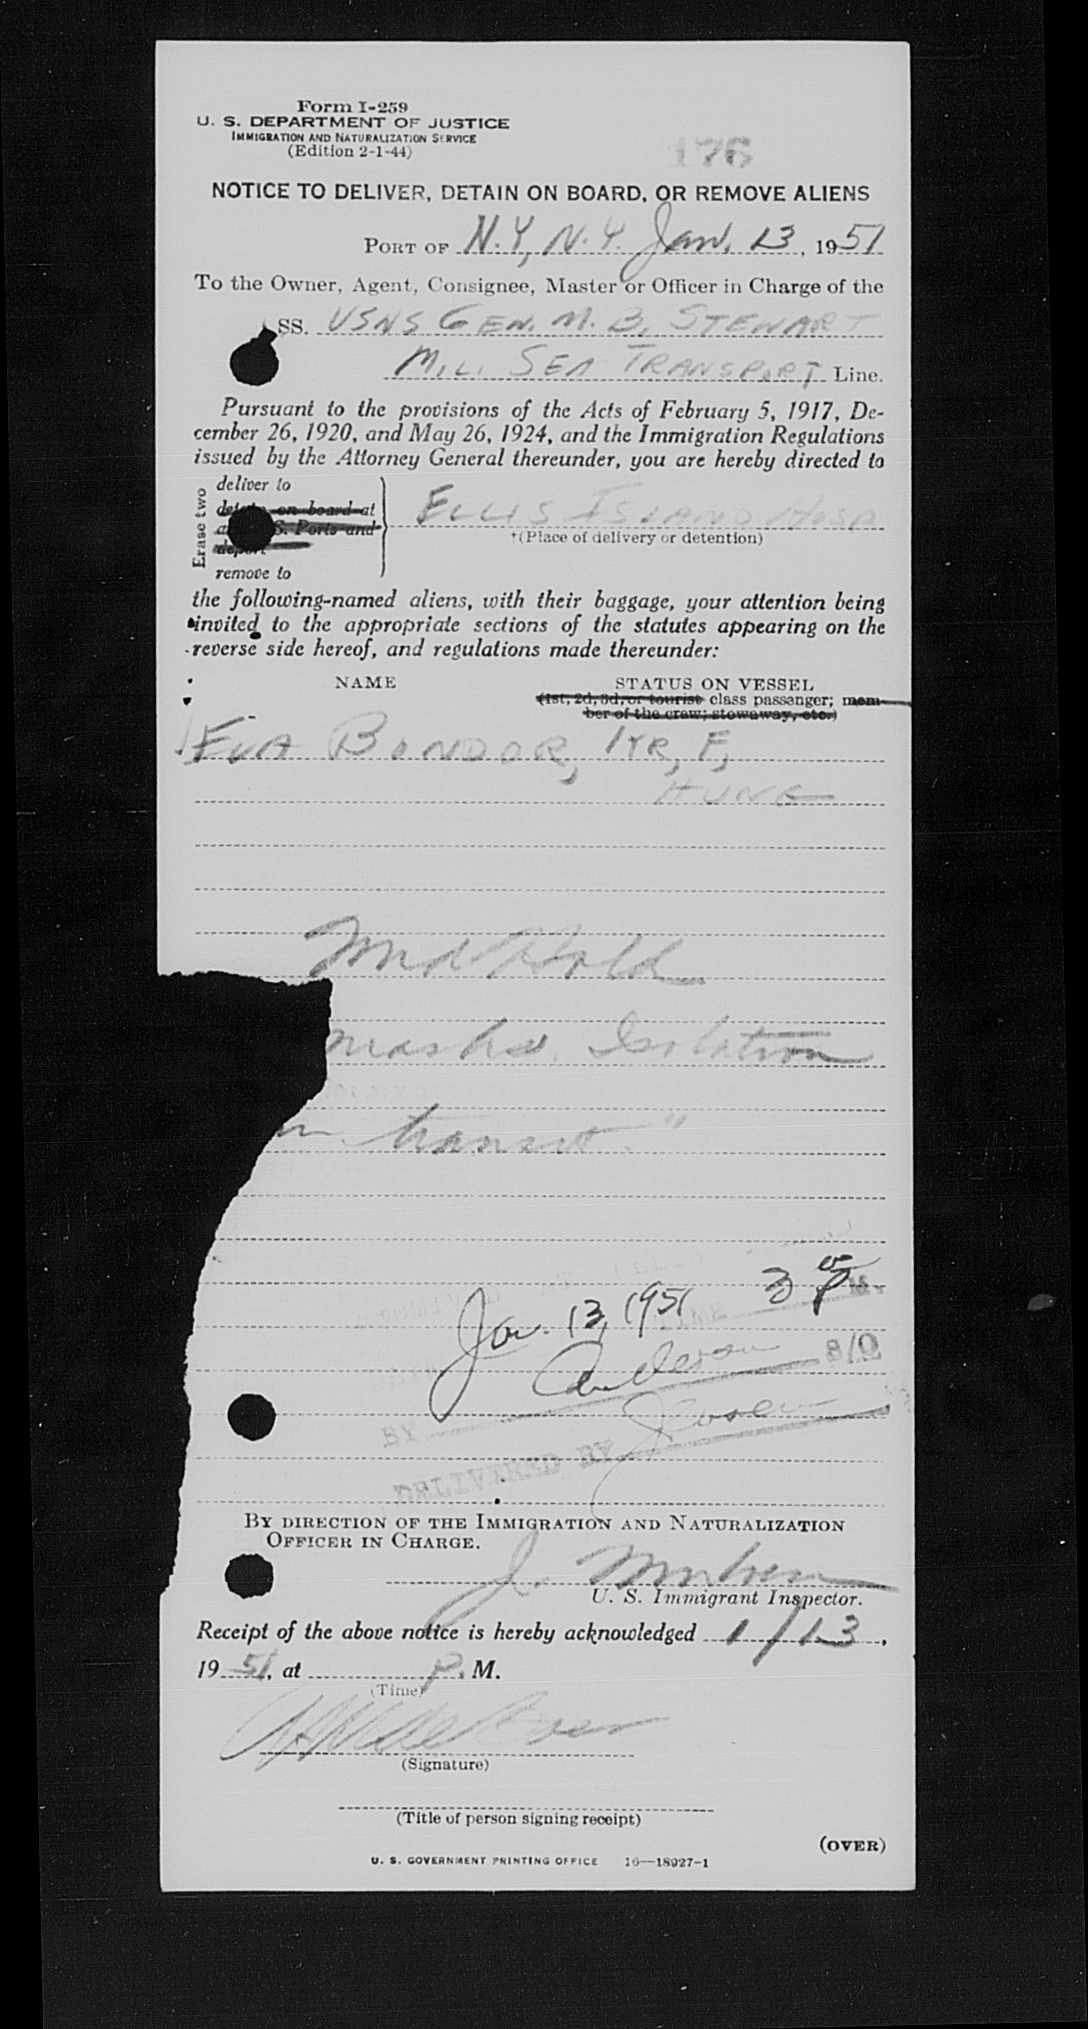 Form I-259
U. S. DEPARTMENT OF JUSTICE
IMMIGRATION AND NATURALIZATION SERVICE
(Edition 2-1-44)
176
NOTICE TO DELIVER, DETAIN ON BOARD, OR REMOVE ALIENS
PORT OF N.Y, N.Y. Jan. 13, 1951
To the Owner, Agent, Consignee, Master or Officer in Charge of the
SS. USNS GEN. M. B. STEWART
MIL. SEA TRANSPORT Line.
Pursuant to the provisions of the Acts of February 5, 1917, De-
cember 26, 1920, and May 26, 1924, and the Immigration Regulations
issued by the Attorney General thereunder, you are hereby directed to
Erase two
deliver to
on board at
S. Ports and
deport
remove to
ELLIS ISLAND HOSP
†(Place of delivery or detention)
the following-named aliens, with their baggage, your attention being
invited to the appropriate sections of the statutes appearing on the
reverse side hereof, and regulations made thereunder:
NAME STATUS ON VESSEL
(1st, 2d, 3d, or tourist class passenger; mem-
ber of the crew; stowaway, etc.)
EVA BONDOR, 1YR, F,
HUNG
Med Hold
Isolation
transit."
Jan. 13, 1951 3
Anderson
BY
DELIVERED BY
BY DIRECTION OF THE IMMIGRATION AND NATURALIZATION
OFFICER IN CHARGE.
J.
U. S. Immigrant Inspector.
Receipt of the above notice is hereby acknowledged 1/13,
1951, at P. M.
(Time)
(Signature)
(Title of person signing receipt)
(OVER)
U. S. GOVERNMENT PRINTING OFFICE 16—18927-1